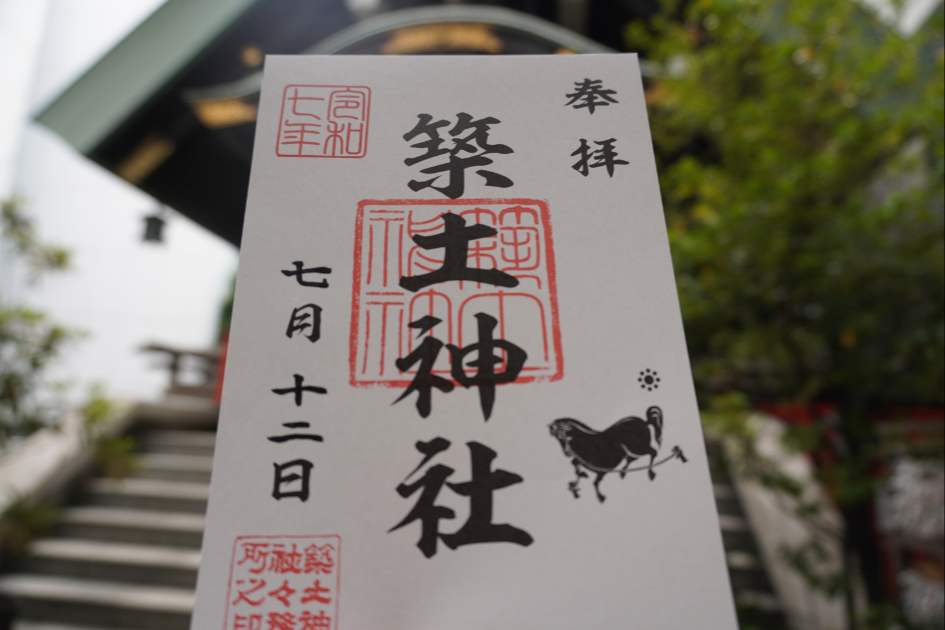 奉拝
築土神社
築土神社
令和七年
七月十二日
築土神社々務所之印